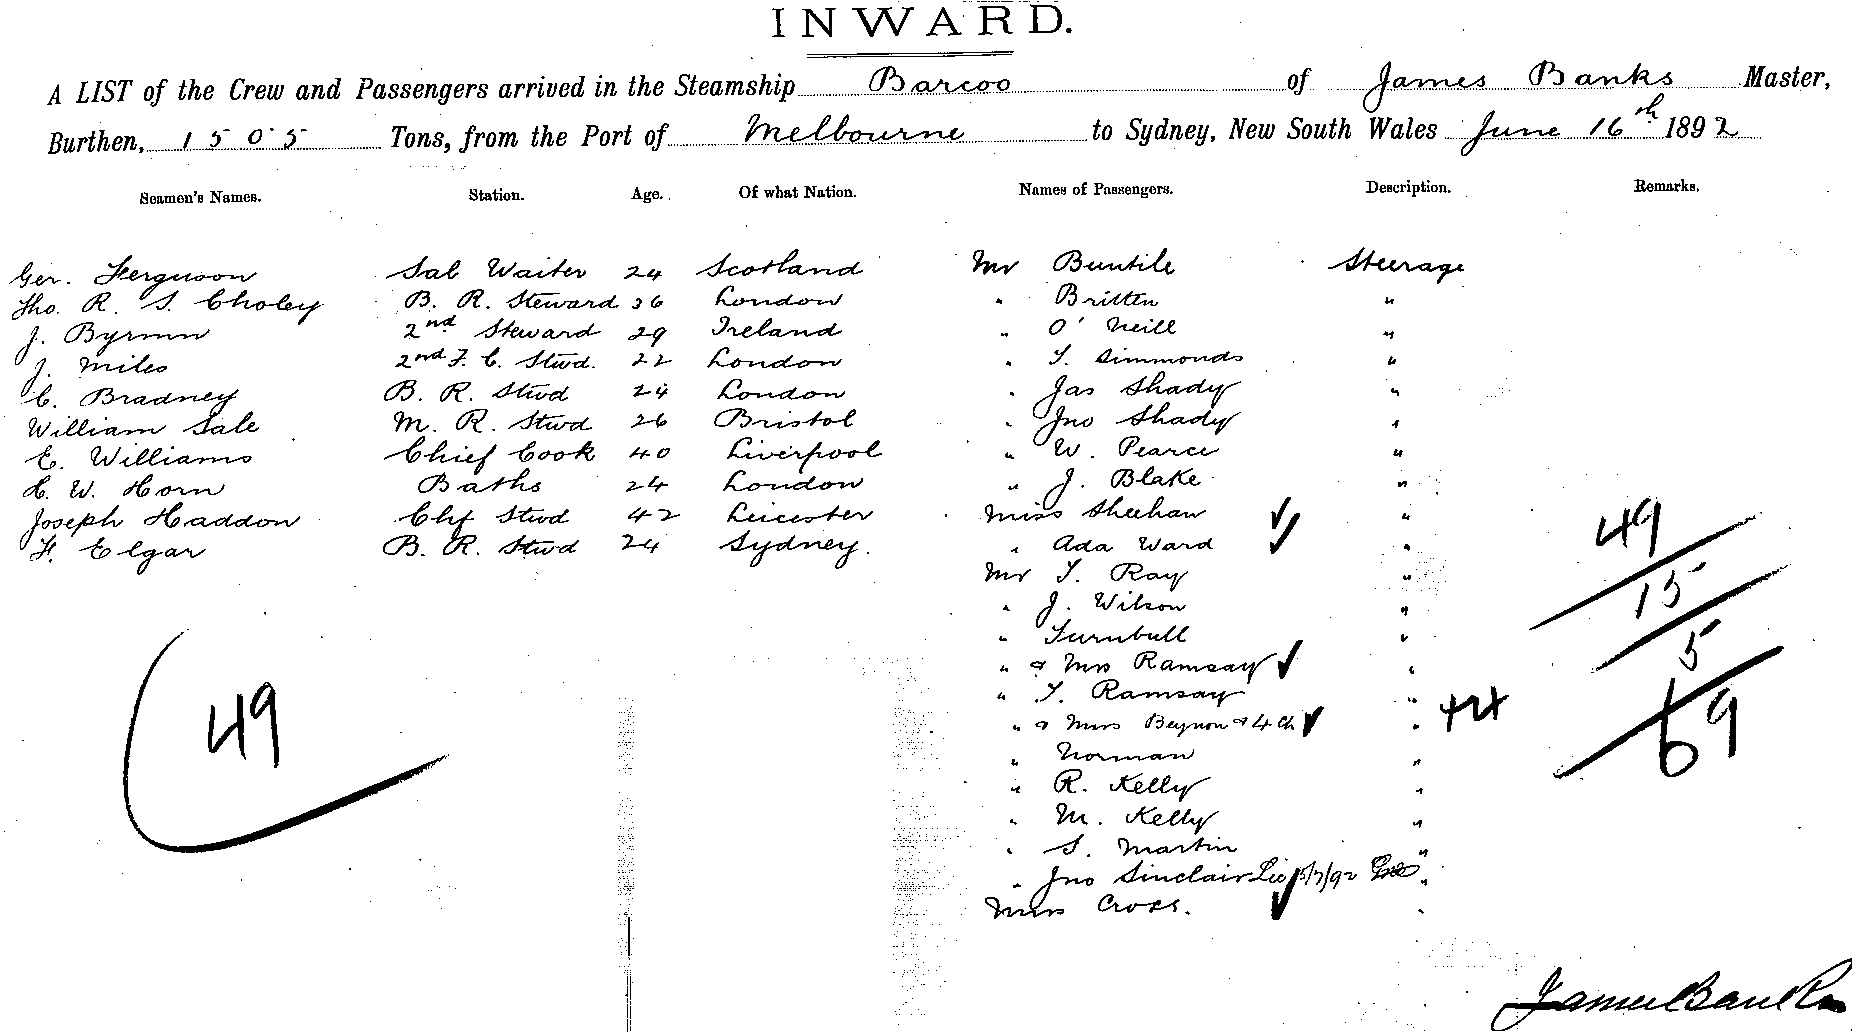 INWARD.
A LIST of the Crew and Passengers arrived in the Steamship Barcoo of James Banks Master,
Burthen, 1505 Tons, from the Port of Melbourne to Sydney, New South Wales June 16th 1892
Seamen's Names. Station. Age. Of what Nation. Names of Passengers. Description. Remarks.
Ger. Ferguson Sal Waiter 24 Scotland Mr Buntile Steerage
Tho. R. S. Choley B. R. Steward 36 London " Britten "
J. Byrmn 2nd Steward 29 Ireland " O'Neill "
J. Miles 2nd F. C. Stwd. 22 London " T. Simmonds "
C. Bradney B. R. Stwd 24 London " Jas Shady "
William Sale M. R. Stwd 26 Bristol " Jno Shady "
E. Williams Chief Cook 40 Liverpool " W. Pearce "
H. W. Horn Baths 24 London " J. Blake "
Joseph Haddon Chf Stwd 42 Leicester Miss Sheehan "
F. Elgar B. R. Stwd 24 Sydney. " Ada Ward "
Mr T. Ray "
" J. Wilson "
" Turnbull "
" & Mrs Ramsay "
" T. Ramsay "
" & Mrs Beynon & 4 Ch "
" Norman "
" R. Kelly "
" M. Kelly "
" S. Martin "
" Jno Sinclair "
Mrs Cross.
49
49
15
5
69
44
James Banks